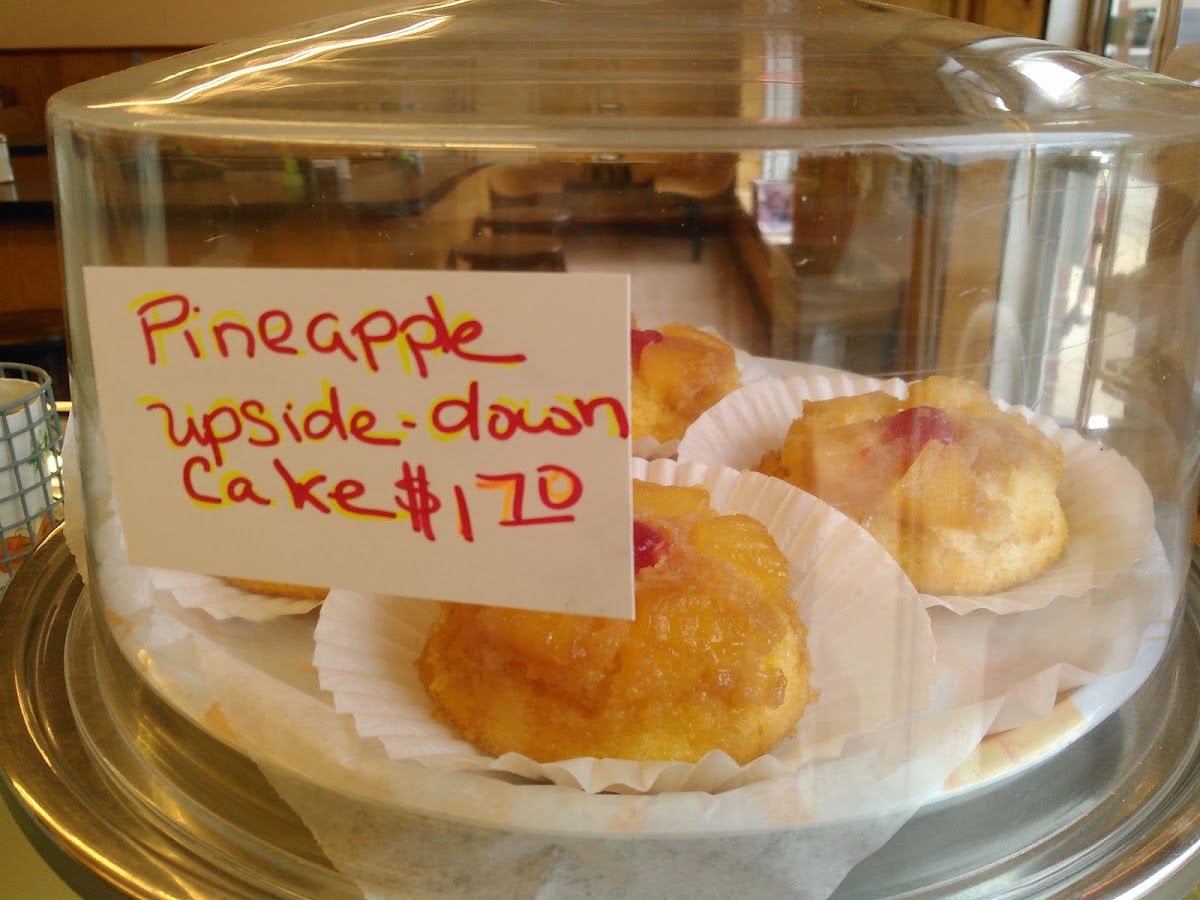 Pineapple
upside-down
Cake $1 70